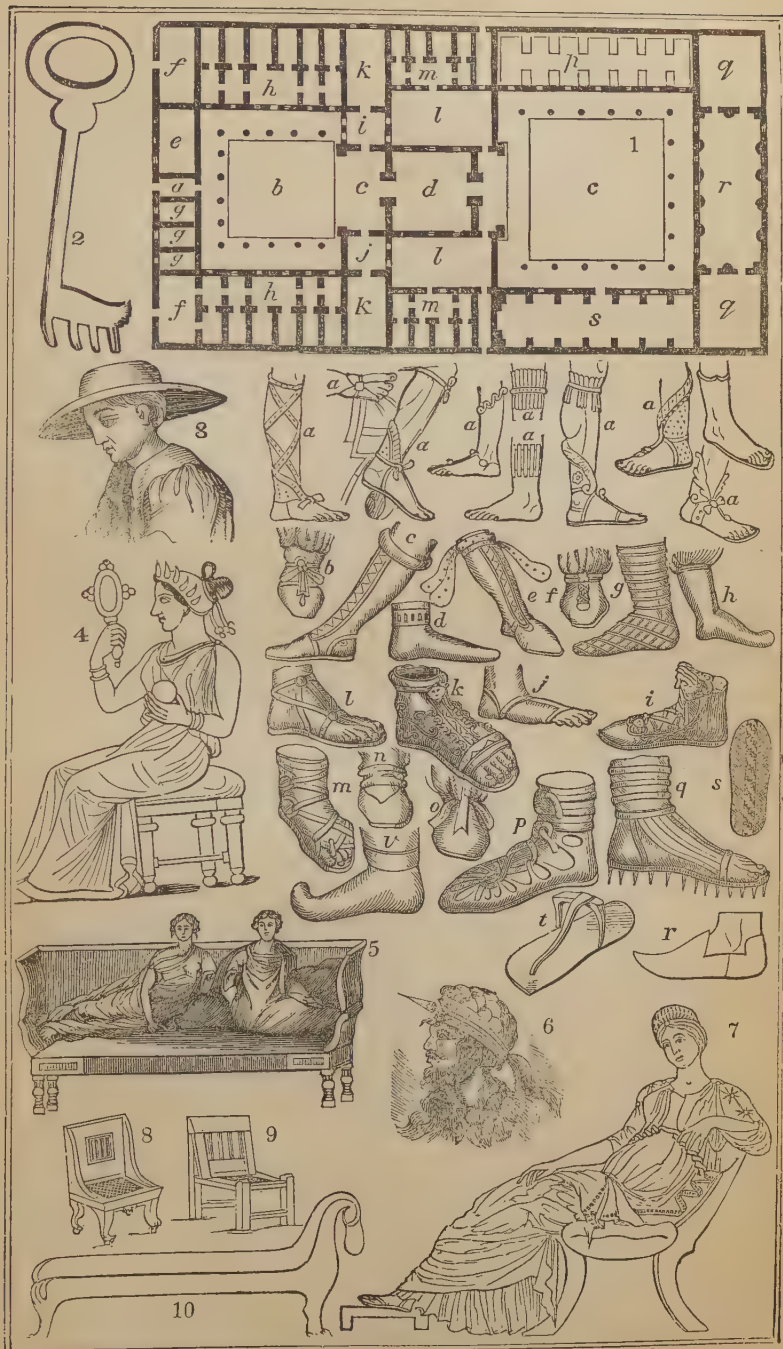 f h k m p q
i l
e 1
a b c d c r
g
2 g
g j l
f h k m s q
3 a a a a a a a
a
a
b c e f g h
d
4 l k j i
m n o p q s
v
t r
5
6 7
8 9
10